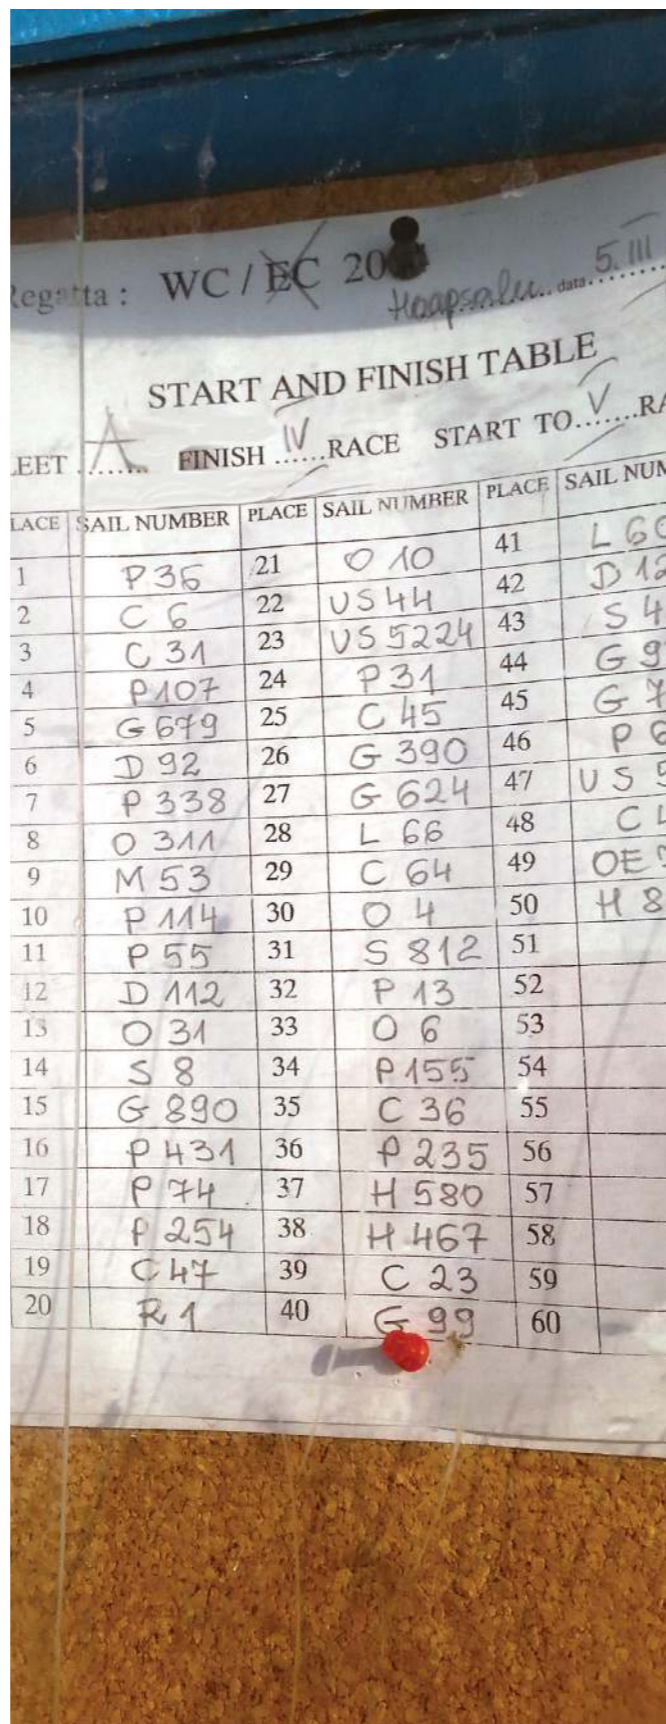 Regatta : WC / EC 20 Haapsalu data 5. III
START AND FINISH TABLE
LEET A FINISH IV RACE START TO V RA
LACE SAIL NUMBER PLACE SAIL NUMBER PLACE SAIL NUM
1 P36 21 O 10 41 L 60
2 C 6 22 US44 42 D 12
3 C 31 23 US 5224 43 S 4
4 P107 24 P31 44 G 9
5 G679 25 C 45 45 G 7
6 D 92 26 G 390 46 P 6
7 P 338 27 G 624 47 US 5
8 O 311 28 L 66 48 C
9 M 53 29 C 64 49 OE
10 P 114 30 O 4 50 H 8
11 P 55 31 S 812 51
12 D 112 32 P 13 52
13 O 31 33 O 6 53
14 S 8 34 P 155 54
15 G 890 35 C 36 55
16 P 431 36 P 235 56
17 P 74 37 H 580 57
18 P 254 38 H 467 58
19 C 47 39 C 23 59
20 R 1 40 G 99 60